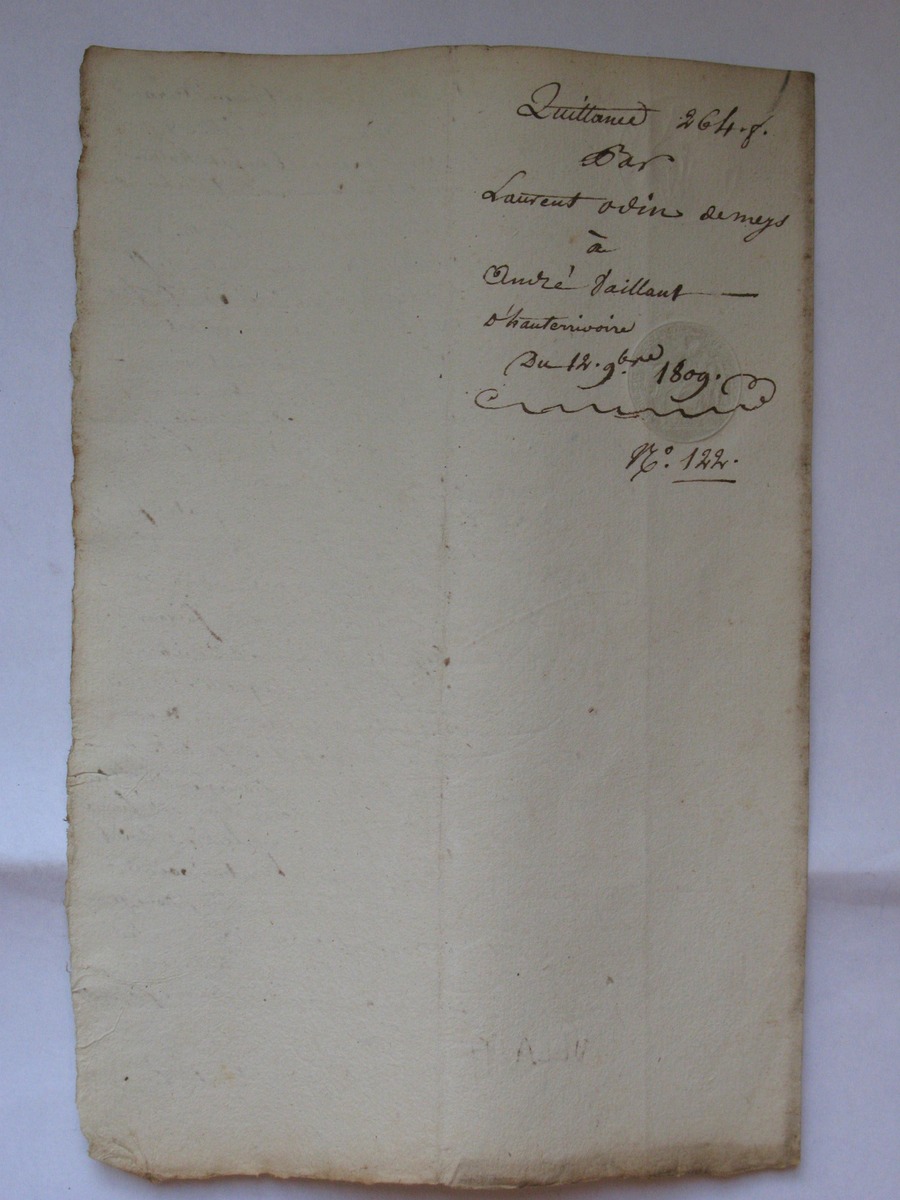 Quittance 264.f.
Par
Laurent odin de meys
à
André Vaillant
d'hauterrivoire
Du 12. 9.bre 1809.
N.o 122.